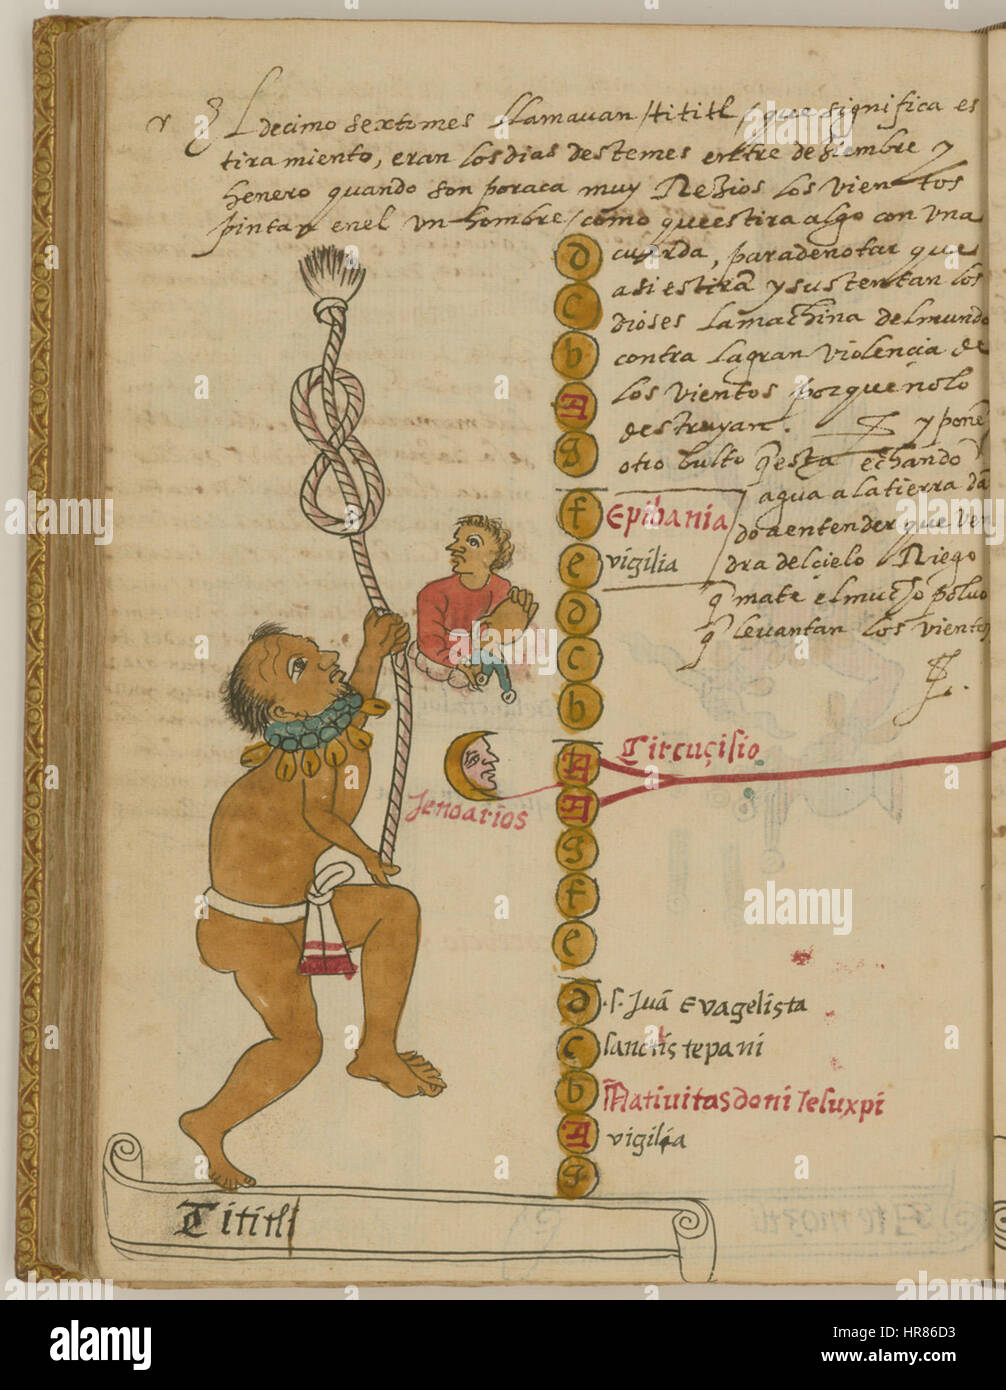 El decimo sextomes llamauan /tititl/ que significa es
tiramiento, eran losdias destemes entre desiembre y
henero quando son poraca muy Rezios los vientos
pintan enel vn hombre/como queestira algo con vna
cuerda, paradenotar que
asi estirã ysustentan los
dioses lamachina delmundo
contra lagran violencia de
los vientos porquenolo
destruyan. y pone
otro bulto q̃esta echando
agua alatierra dã
doaentender que ven
dra delcielo Riego
q̃ mate elmucho poluo
q̃ leuantan los vientos
d
c
b
A
g
f Epibania
e vigilia
d
c
b
A Circuçisio
Jenoarios
A
g
f
e
d .s. Juã Evagelista
c sanctistepani
b Natiuitasdoni Jesuxpi
A vigilia
g
Tititl
a
alamy
alamy stock photo
HR86D3
www.alamy.com